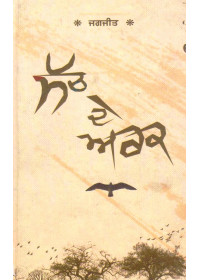 ❋ ਜਗਜੀਤ ❋
ਸੱਚ
ਦੇ
ਅਰਕ